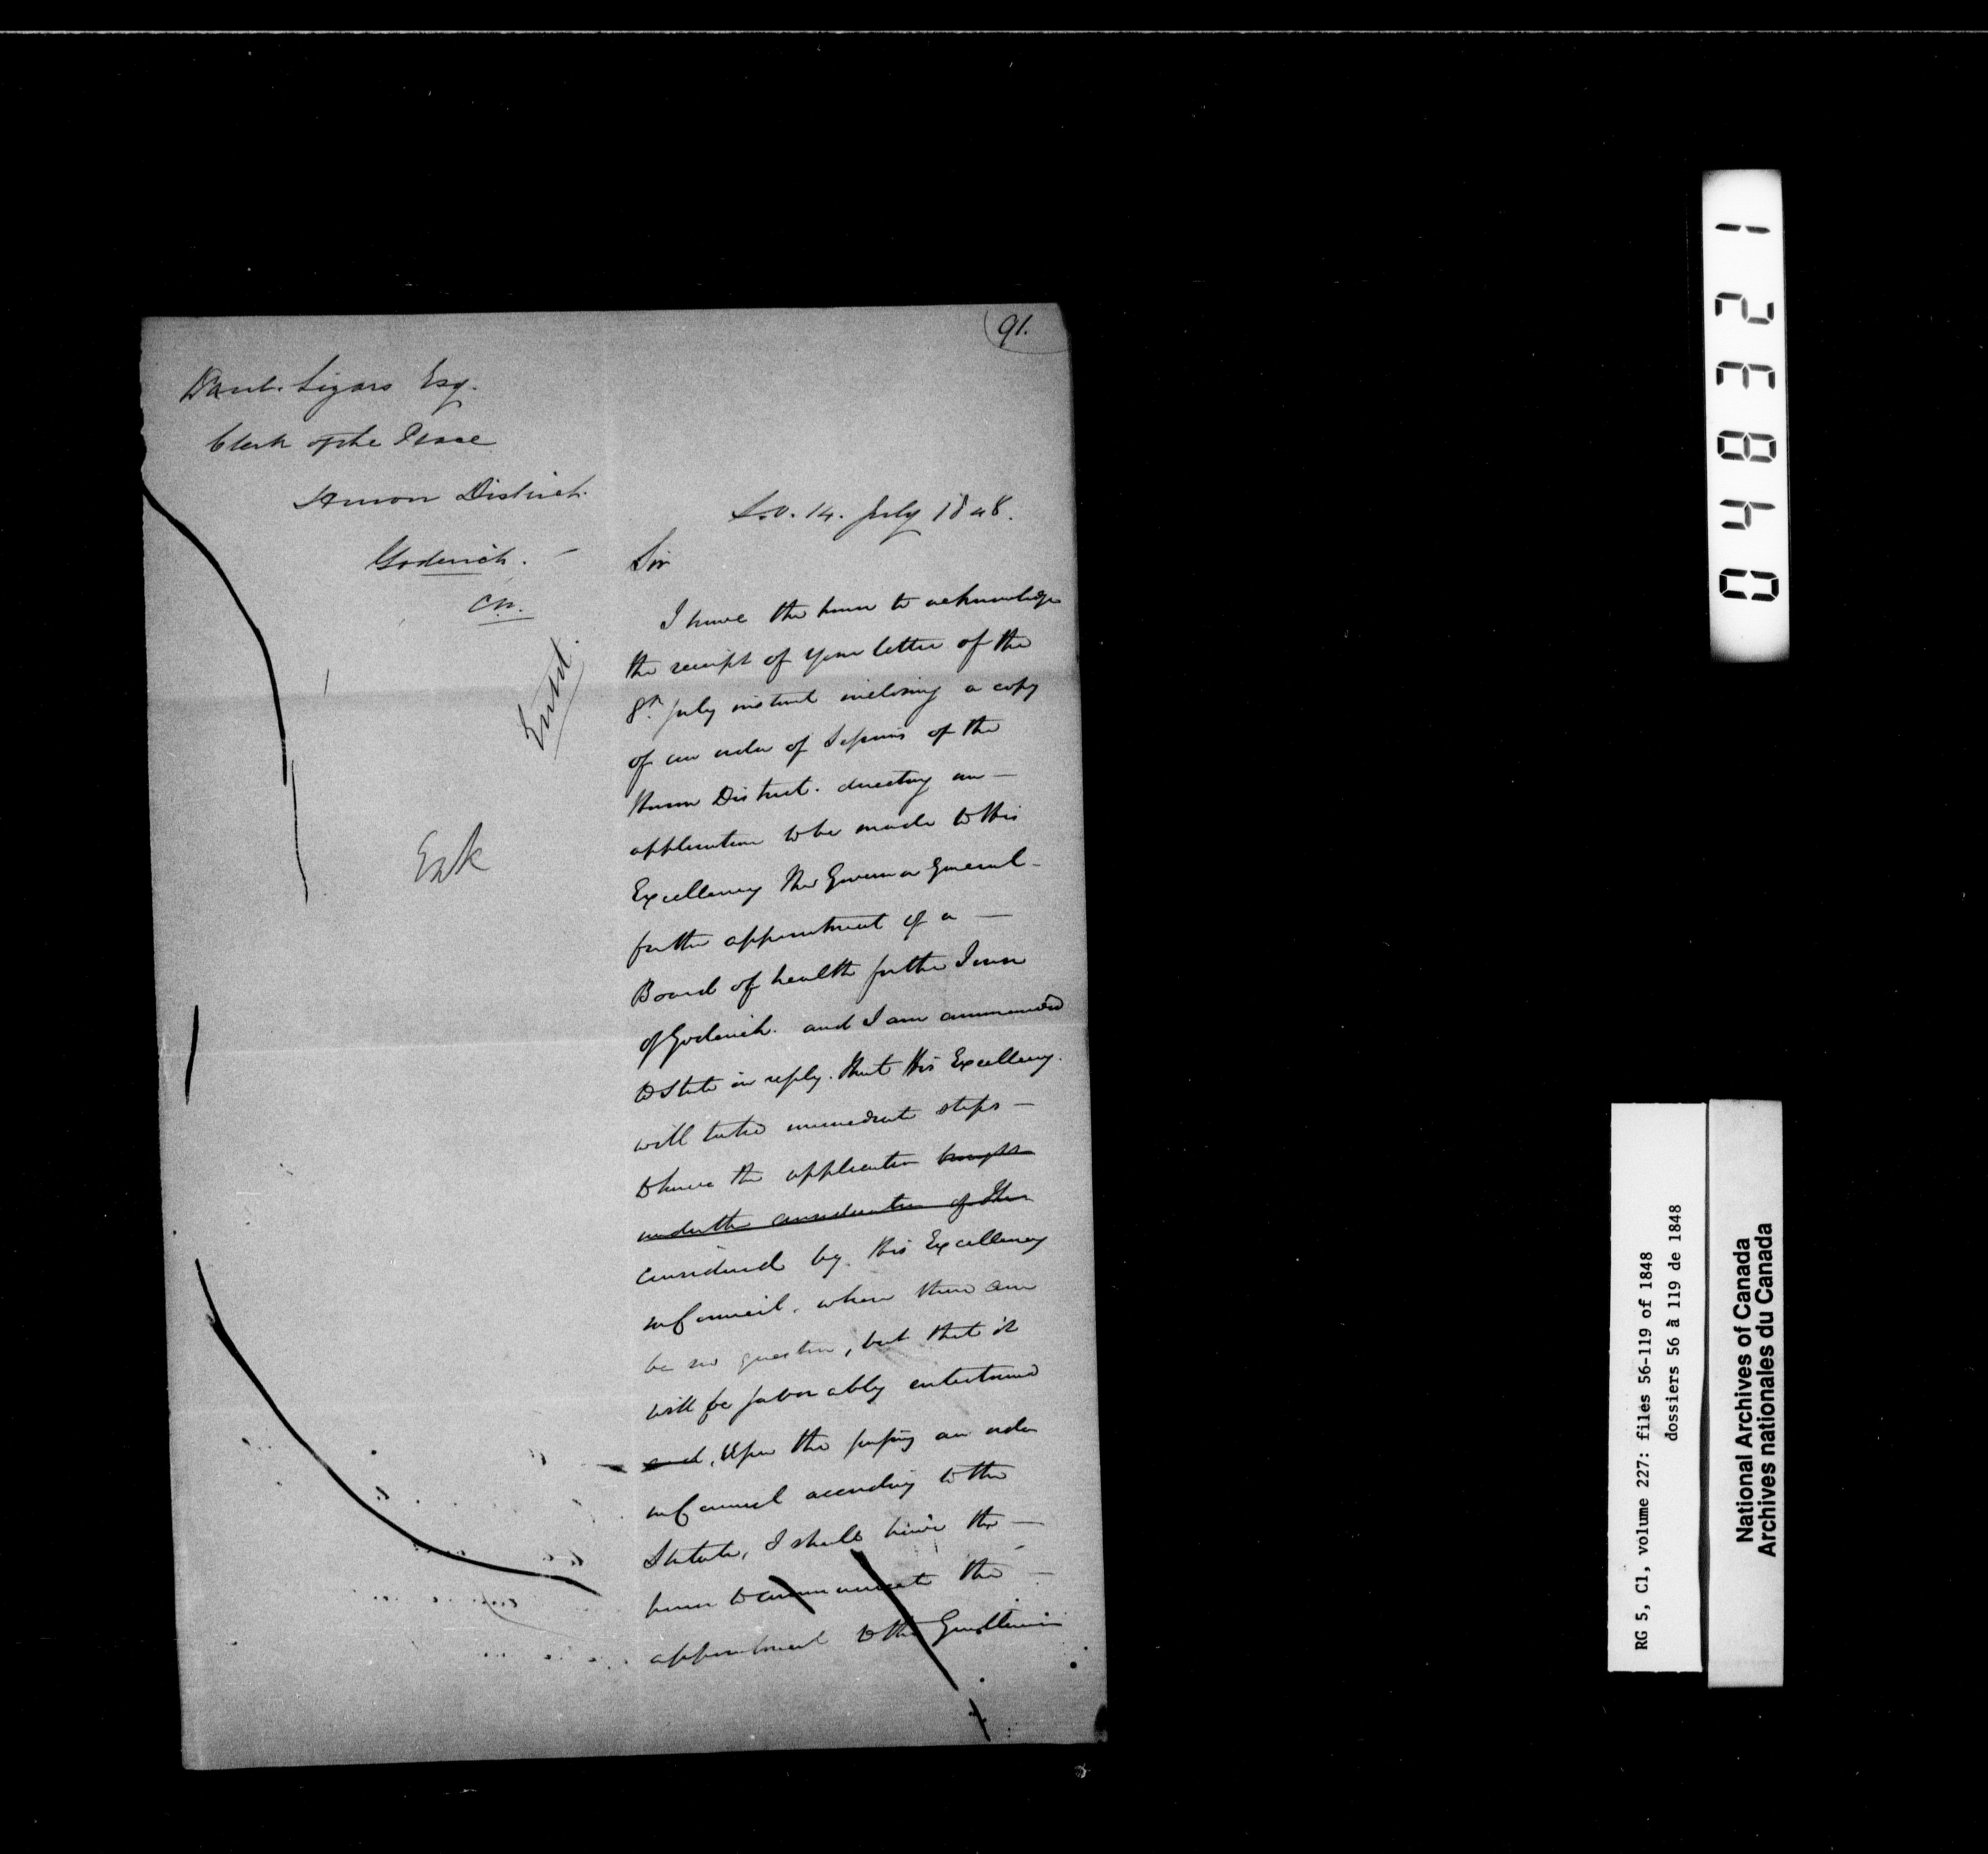 91.
Danl. Lizars Esq.
Clerk of the Peace
Huron District.
Goderich.
C.W.
S.O. 14. July 1848.
Sir
I have the honor to acknowledge
the receipt of your letter of the
8th July instant inclosing a copy
of an order of Sessions of the
Huron District. directing an —
application to be made to His
Excellency the Governor General -
for the appointment of a —
Board of health for the Town
of Goderich. and I am commanded
to state in reply. that His Excellency.
will take immediate steps —
to have the application brought
under the consideration of the
considered by His Excellency
in Council. where there can
be no question, but that it
will be favorably entertained
and, Upon the passing an order
in Council according to the
Statute, I shall have the —
honor to communicate the —
appointment to the Gentlemen
Entd.
RG 5, C1, volume 227: files 56-119 of 1848
dossiers 56 à 119 de 1848
National Archives of Canada
Archives nationales du Canada
048321